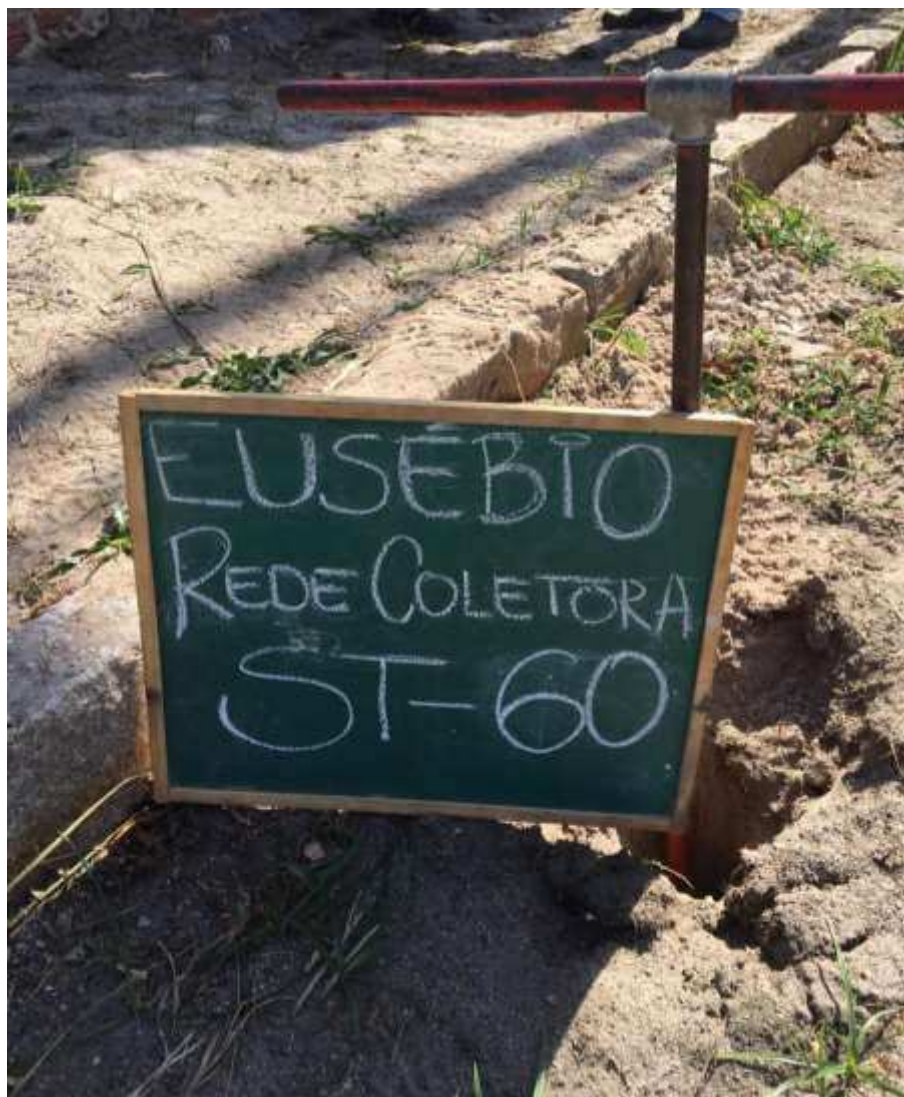 EUSÉBIO
REDE COLETORA
ST-60